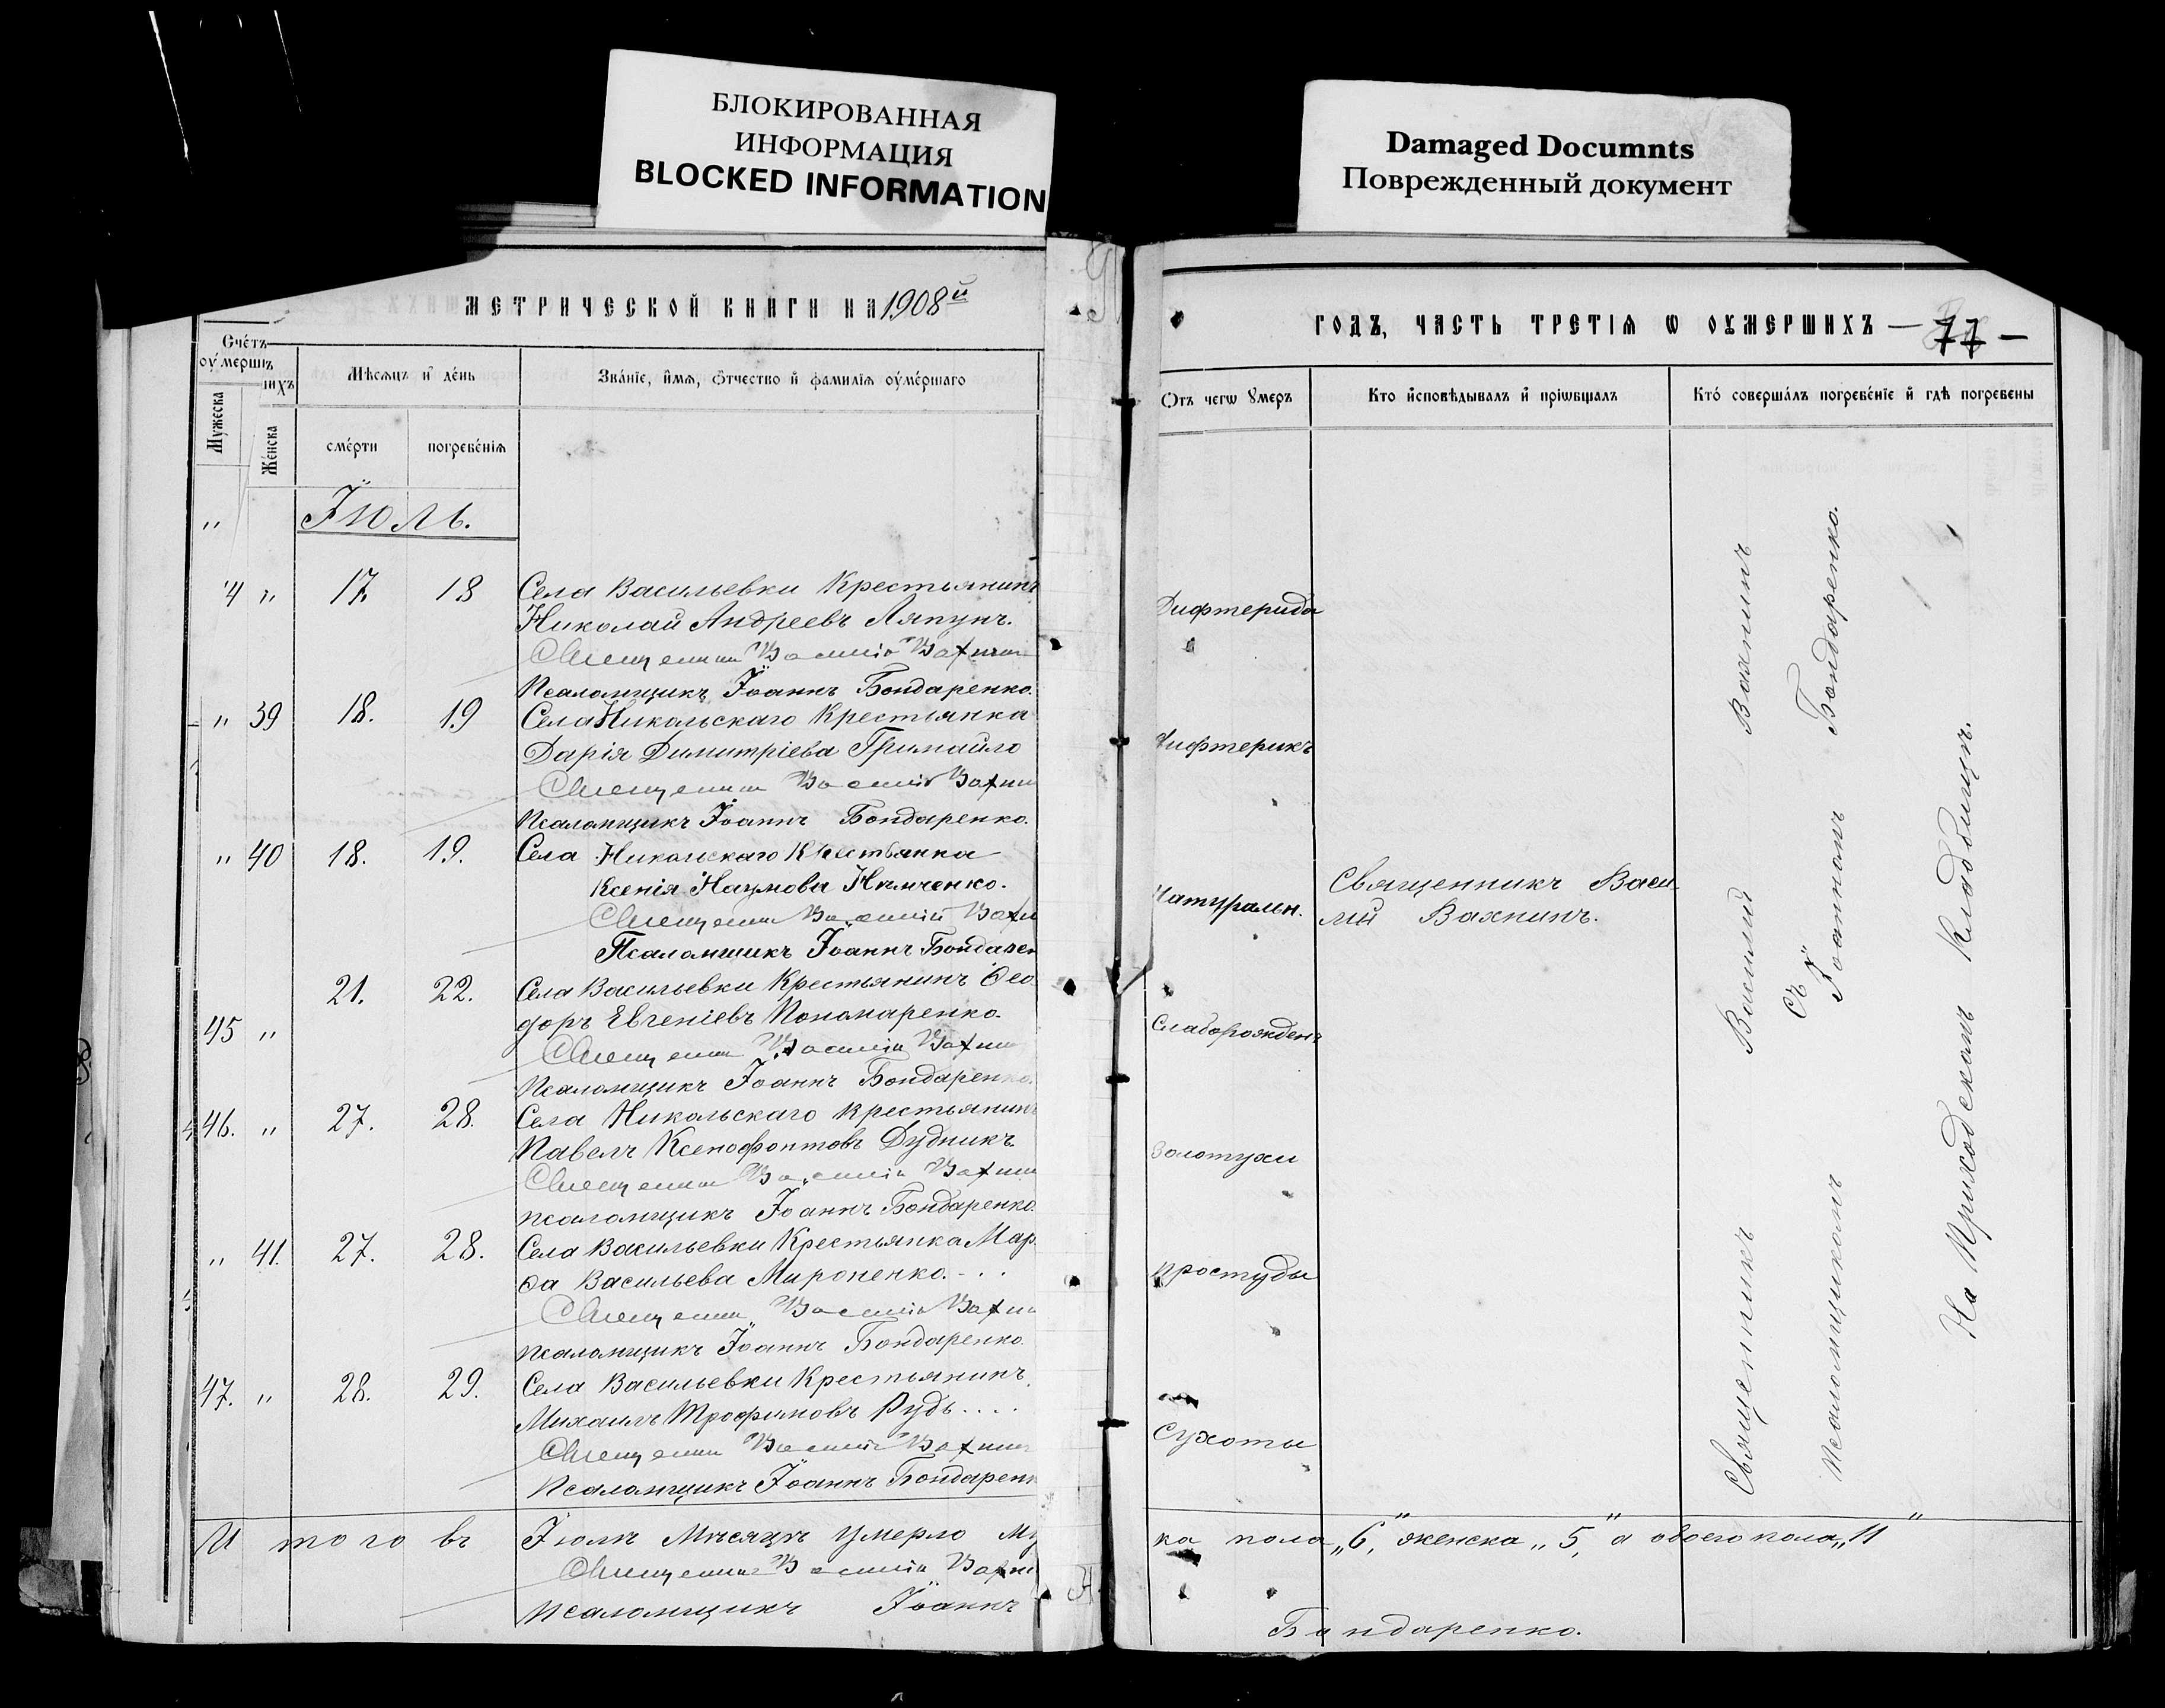 БЛОКИРОВАННАЯ
ИНФОРМАЦИЯ
BLOCKED INFORMATION
Damaged Documnts
Поврежденный документ
МЕТРИЧЕСКОЙ КНИГИ НА 1908й
Счетъ
оумерши
ихъ
Мѣсяцъ и день
Званіе, имя, отчество и фамилія оумершаго
Мужеска
Женска
смерти
погребенія
Іюль.
"
4 " 17. 18 Села Васильевки Крестьянинъ
Николай Андреевъ Ляпунъ.
Священникъ Василій Вахнинъ
Псаломщикъ Іоаннъ Бондаренко.
" 39 18. 19 Села Никольскаго Крестьянка
Дарія Димитріева Гримайло
Священникъ Василій Вахнин
Псаломщикъ Іоаннъ Бондаренко.
" 40 18. 19. Села Никольскаго Крестьянка
Ксенія Наумова Нѣмченко.
Священникъ Василій Вахн
Псаломщикъ Іоаннъ Бондарен
21. 22. Села Васильевки Крестьянинъ Ѳео
45 " доръ Евгеніевъ Пономаренко.
Священникъ Василій Вахнин
Псаломщикъ Іоаннъ Бондаренко.
46. " 27. 28. Села Никольскаго крестьянинъ
Павелъ Ксенофонтовъ Дудникъ.
Священникъ Василій Вахнин
псаломщикъ Іоаннъ Бондаренко.
" 41. 27. 28. Села Васильевки Крестьянка Мар
ѳа Васильева Мироненко. - . .
Священникъ Василій Вахни
псаломщикъ Іоаннъ Бондаренко.
47. " 28. 29. Села Васильевки Крестьянинъ
Михаилъ Трофимовъ Рудь . . . .
Священникъ Василій Вахнин
Псаломщикъ Іоаннъ Бондаренк
Итого въ Іюлѣ Мѣсяцѣ умерло Му
Священникъ Василій Вахни
псаломщикъ Іоаннъ
ГОДЪ, ЧАСТЬ ТРЕТІЯ Ѡ ОУМЕРШИХЪ — 77 —
Отъ чегѡ умеръ
Кто исповѣдывалъ и пріѡбщалъ
Кто совершалъ погребеніе и гдѣ погребены
Дифтерида
Дифтерикъ
Натуральн.
Священникъ Васи
лій Вахнинъ.
Слаборожден
Золотухи
простуды
Сухоты
Священникъ Василій Вахнинъ
съ
Псаломщикомъ Іоанномъ Бондаренко.
На Приходскомъ Кладбищѣ.
ка пола „6„ женска „5„ а обоего пола „11"
Бондаренко.